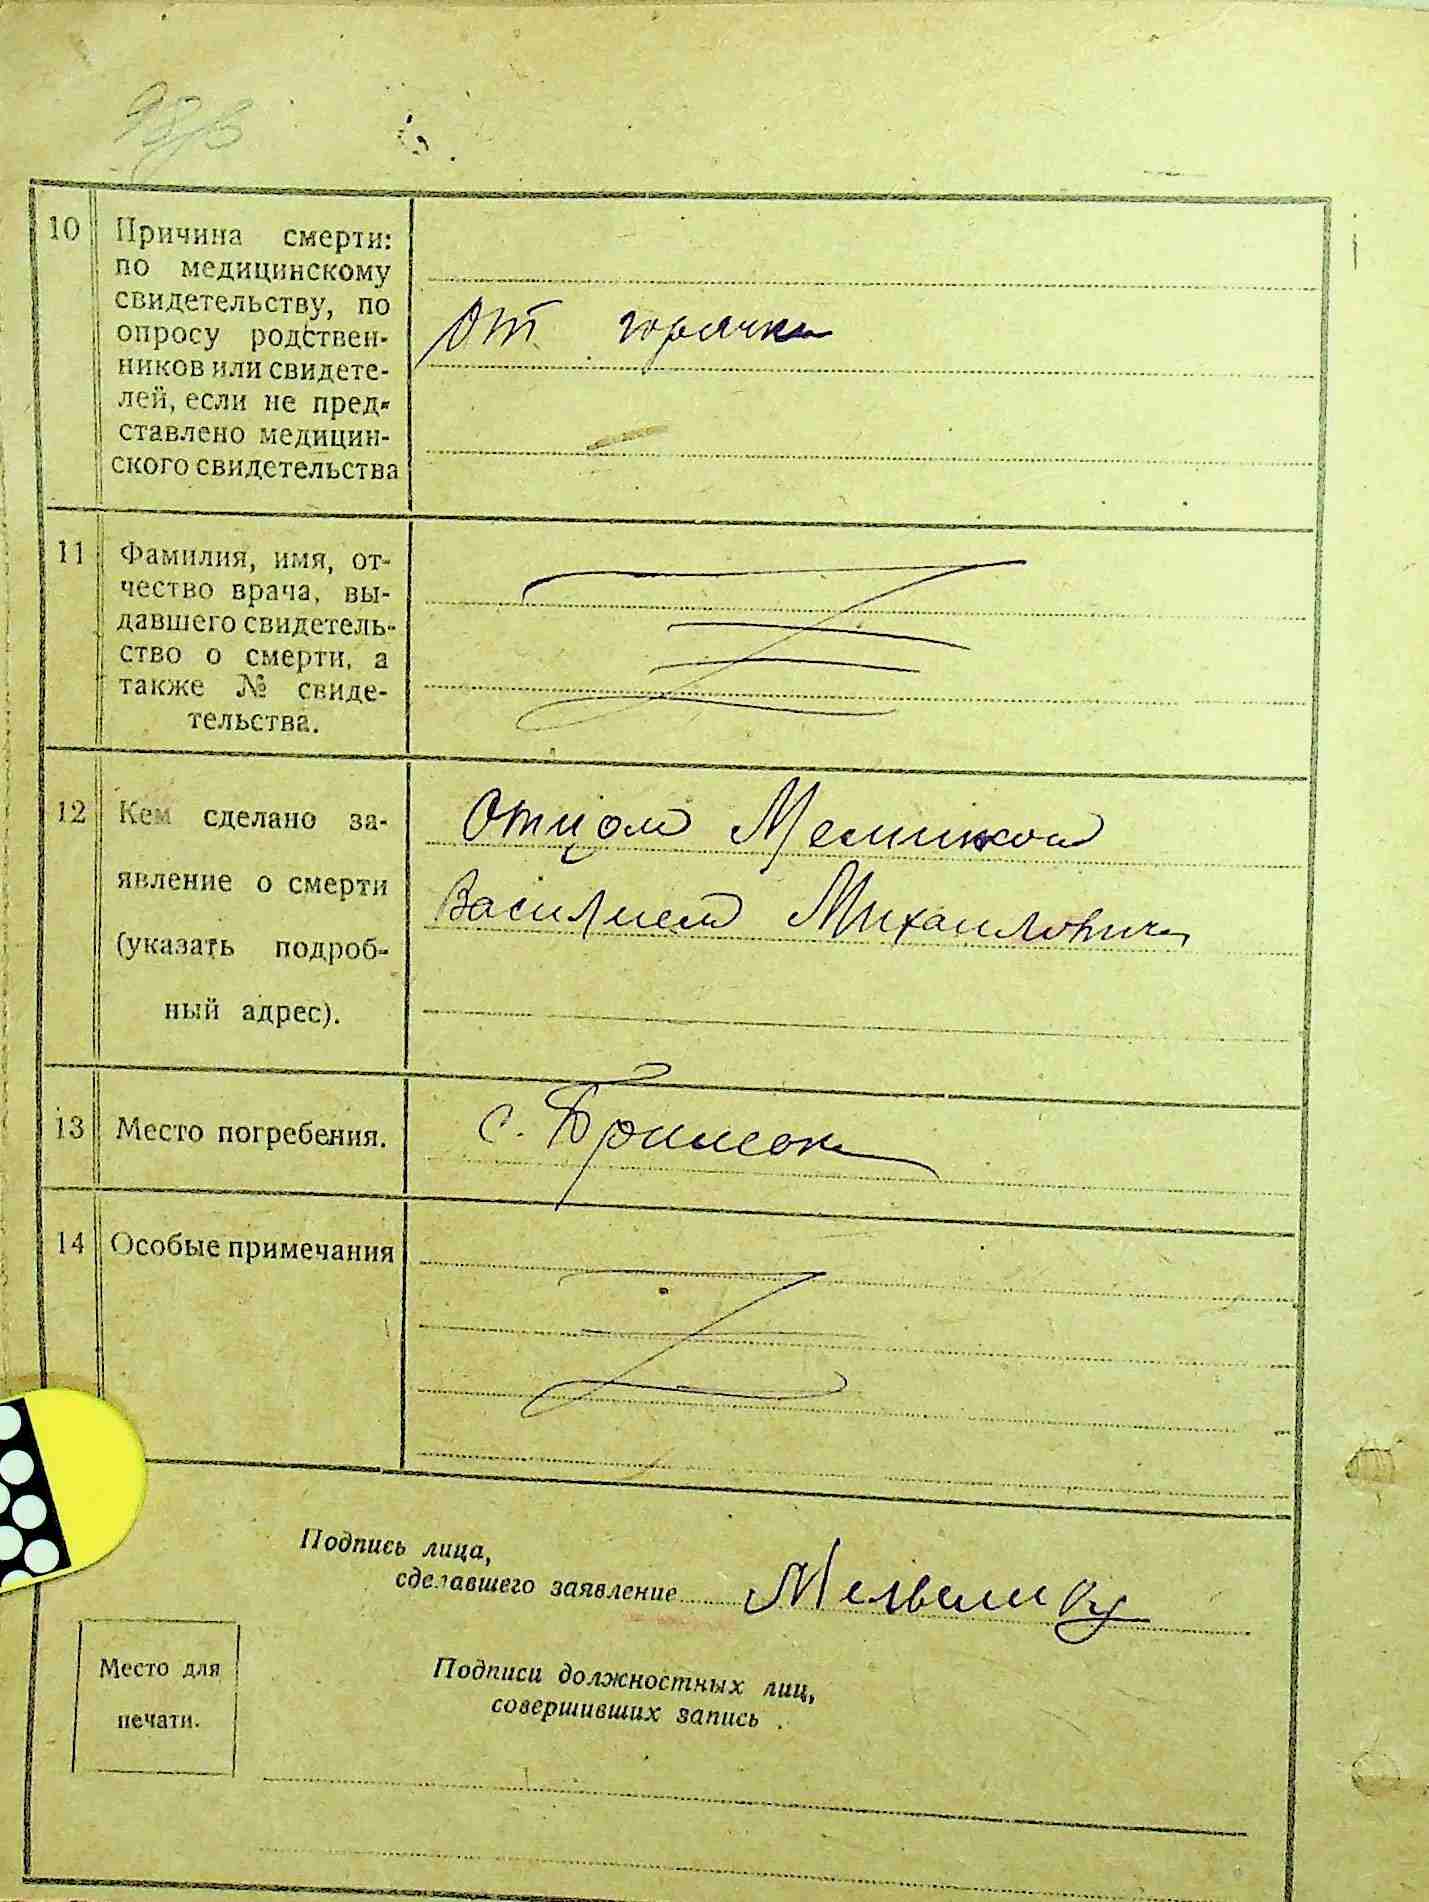 10 Причина смерти:
по медицинскому
свидетельству, по
опросу родствен-
ников или свидете-
лей, если не пред-
ставлено медицин-
ского свидетельства
от горячки
11 Фамилия, имя, от-
чество врача, вы-
давшего свидетель-
ство о смерти, а
также № свиде-
тельства.
12 Кем сделано за-
явление о смерти
(указать подроб-
ный адрес).
Отцом
Василием Михаилович
13 Место погребения.
с.
14 Особые примечания
Подпись лица,
сделавшего заявление
Место для
печати.
Подписи должностных лиц,
совершивших запись.